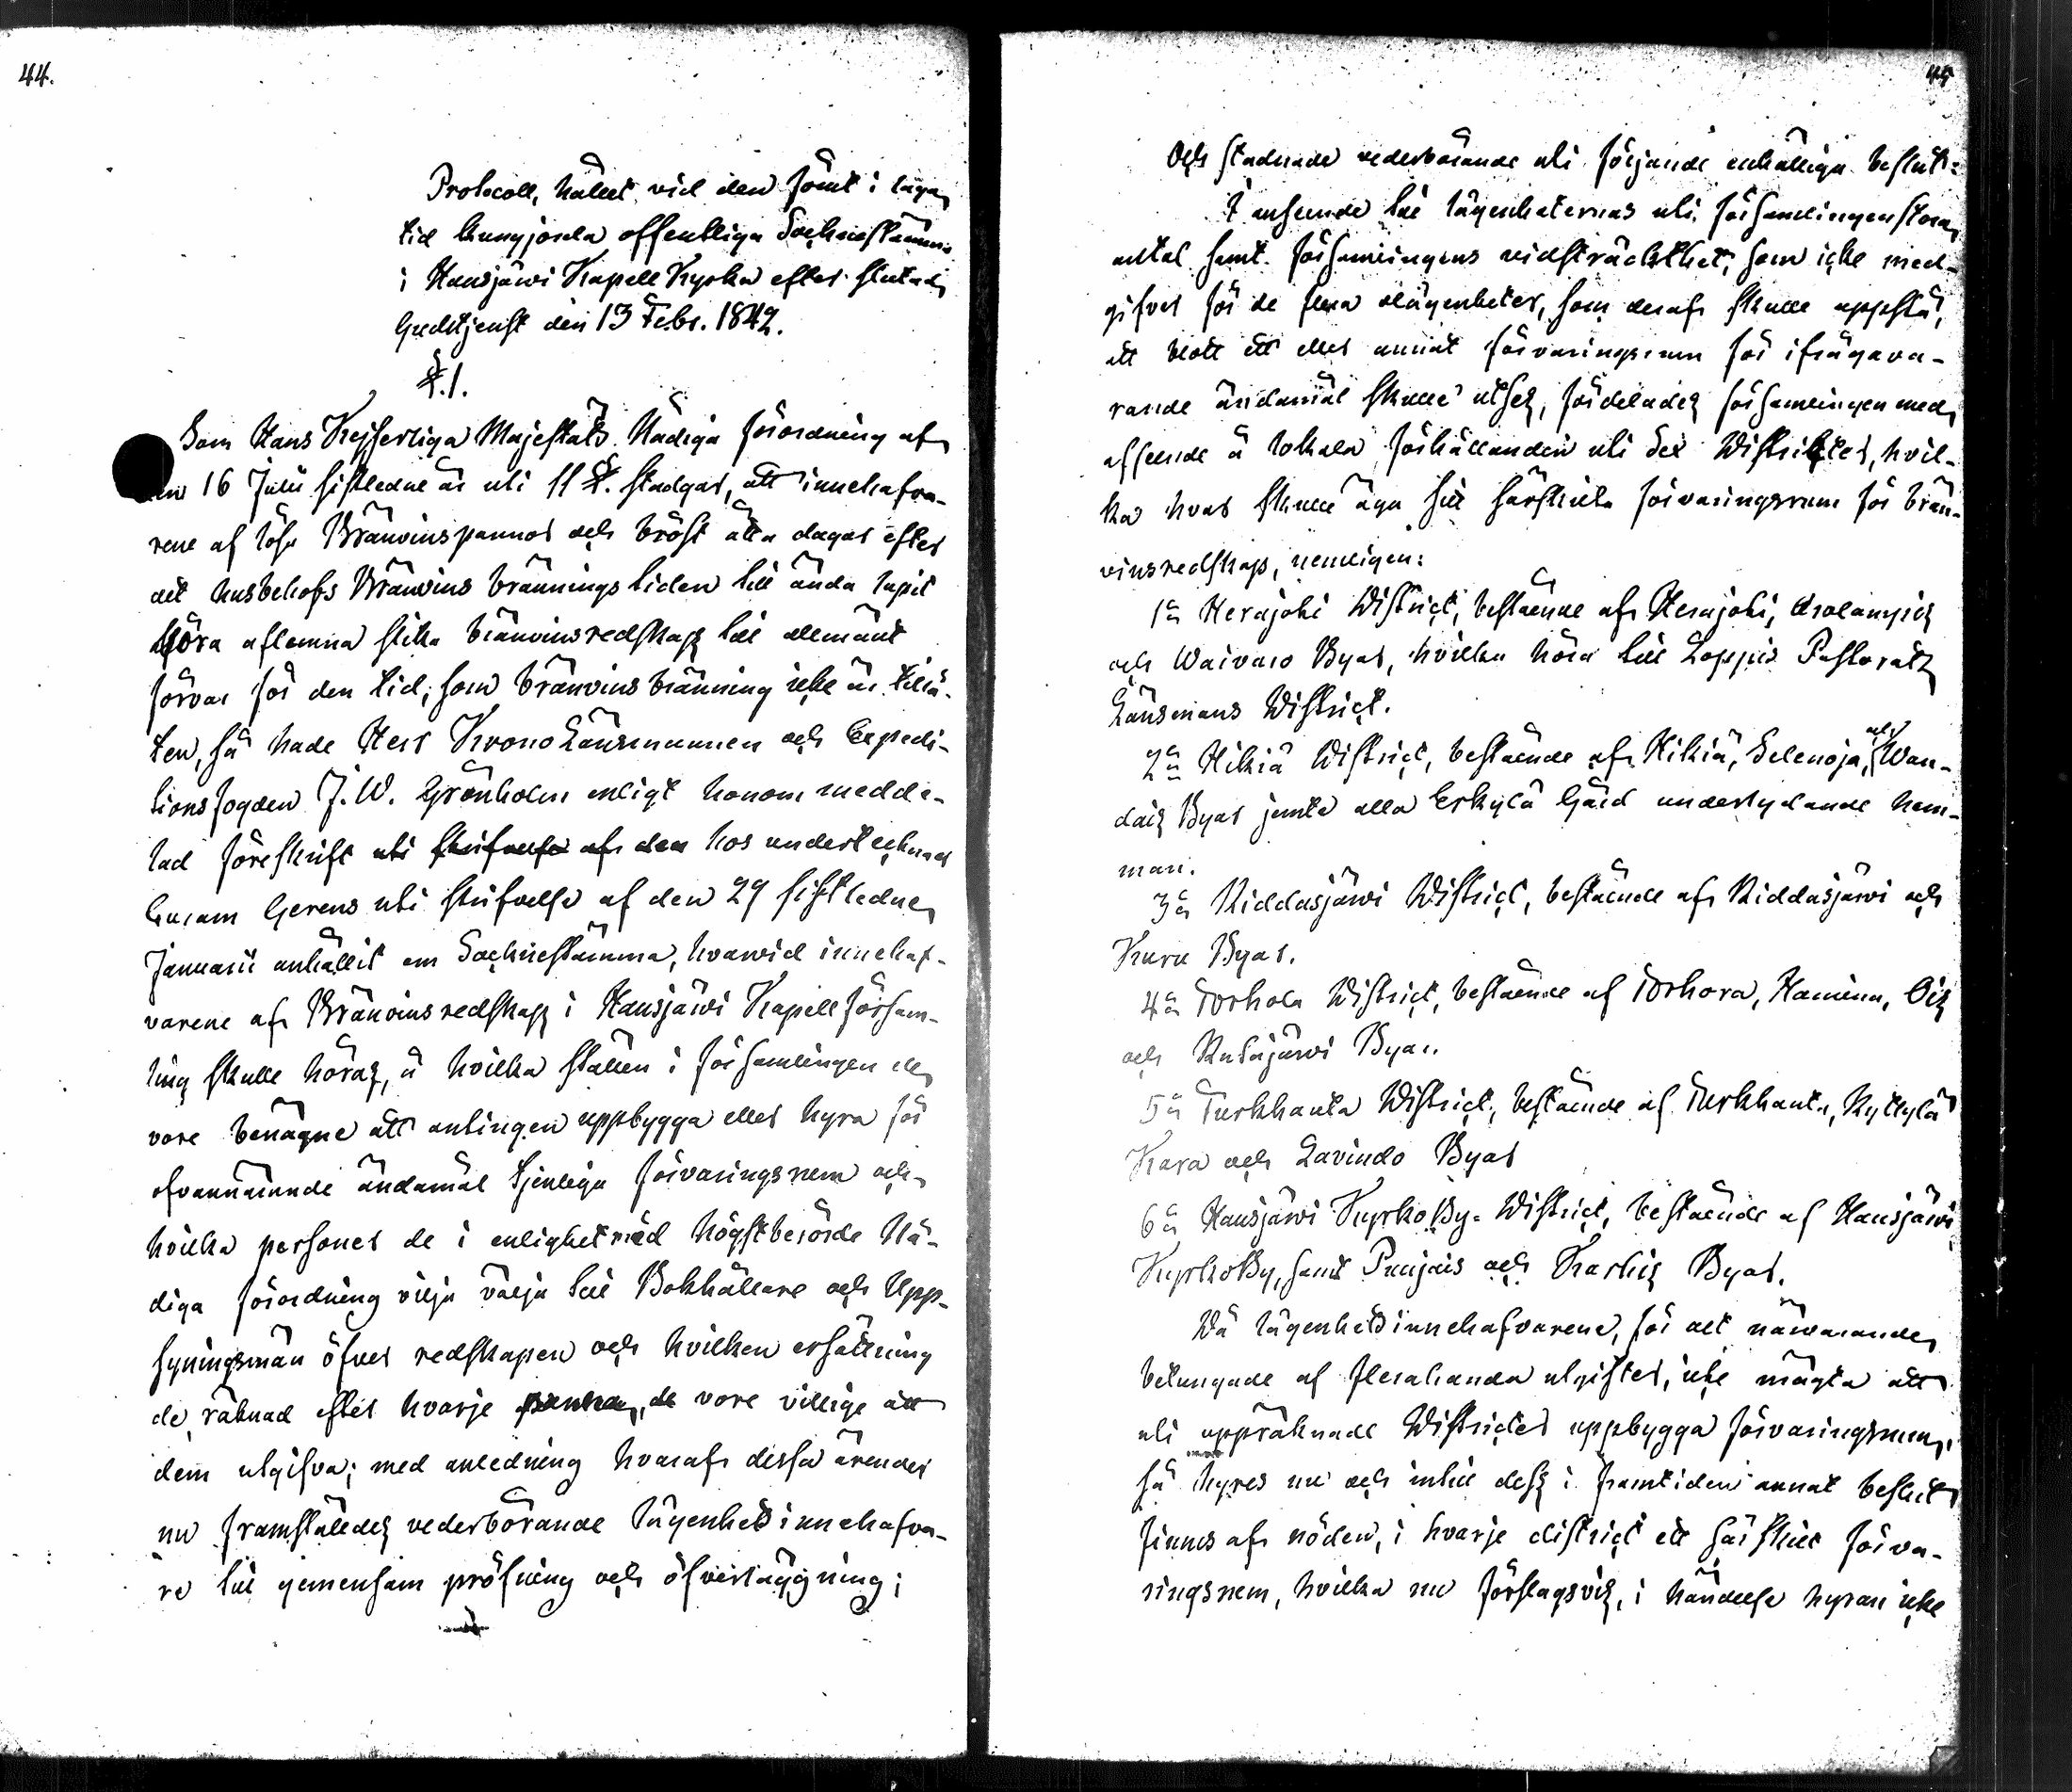 44.
Protocoll, hållet vid den som i laga
tid kungjorda offentliga Sochnestämma
i Hausjärvi Kapell Kyrka efter slutad
Gudstjenst den 13 Febr. 1842.
§. 1.
Som Hans Kejserliga Majestäts Nådiga förordning af
den 16 Julii sistledne år uti 11 §. stadgar, att innehafva-
rene af lösa Bränvinspannor och bröst åtta dagar efter
det husbehofs Bränvins bränningstiden till ända lupit
böra aflemna slika bränvinsredskap till allmänt
förvar för den tid, som bränvinsbränning icke är tillå-
ten, så hade Herr KronoLänsmannen och Expedi-
tionsfogden J. W. Grönholm enligt honom medde-
lad föreskrift uti skrifvelse af den hos undertecknad
Curam Gerens uti skrifvelse af den 29 sistledne
Januarii anhållit om Sochnestämma, hvarvid innehaf-
varene af Bränvinsredskap i Hausjärvi Kapell försam-
ling skulle höras, å hvilka ställen i församlingen de
vore benägne att antingen uppbygga eller hyra för
ofvannämnde ändamål tjenliga förvaringsrum och
hvilka personer de i enlighet med högstberörde Nå-
diga förordning vilja välja till Bokhållare och Upp-
syningsmän öfver redskapen och hvilken ersättning
de, räknad efter hvarje panna, de vore villige att
dem utgifva; med anledning hvaraf dessa ärender
nu framställdes vederbörande lägenhetsinnehafva-
re till gemensam pröfning och öfverläggning;
45
Och stadnade vederbörande uti följande enhälliga beslut:
I anseende till lägenheternas uti församlingen stora
antal samt församlingens vidsträckthet, som icke med-
gifver för de flera olägenheter, som deraf skulle uppstå,
att blott ett eller annat förvaringsrum för ifrågava-
rande ändamål skulle utses, fördelades församlingen med
afseende å lokala förhållanden uti sex Districter, hvil-
ka hvar skulle äga sitt särskilta förvaringsrum för brän-
vinsredskap, nemligen:
1a Herajoki District, bestående af Herajoki, Arolampis
och Waivaro Byar, hvilka höra till Loppis Pastorats
Länsmans District.
2a Hikiä District, bestående af Hikiä, Selenoja, och Wan-
dais Byar jemte alla Erkylä Gård underlydande hem-
man.
3a Riddasjärwi District, bestående af Riddasjärwi och
Kuru Byar.
4a Torhola District, bestående af Torhola, Hamina, Ois
och Rutajärwi Byar.
5a Turkhauta District, bestående af Turkhauta, Ryttylä
Kara och Lavindo Byar
6a Hausjärwi KyrkoBy- District, bestående af Hausjärwi
KyrkoBy, samt Puujais och Karhis Byar.
Då lägenhetsinnehafvarene, för det närvarande
betungade af flerahanda utgifter, icke mägta att
uti uppräknade Districter uppbygga förvaringsrum,
så hyres nu och intill dess i framtiden annat beslut
finnes af nöden, i hvarje district ett särskilt förva-
ringsrum, hvilka nu förslagsvis, i händelse hyran icke